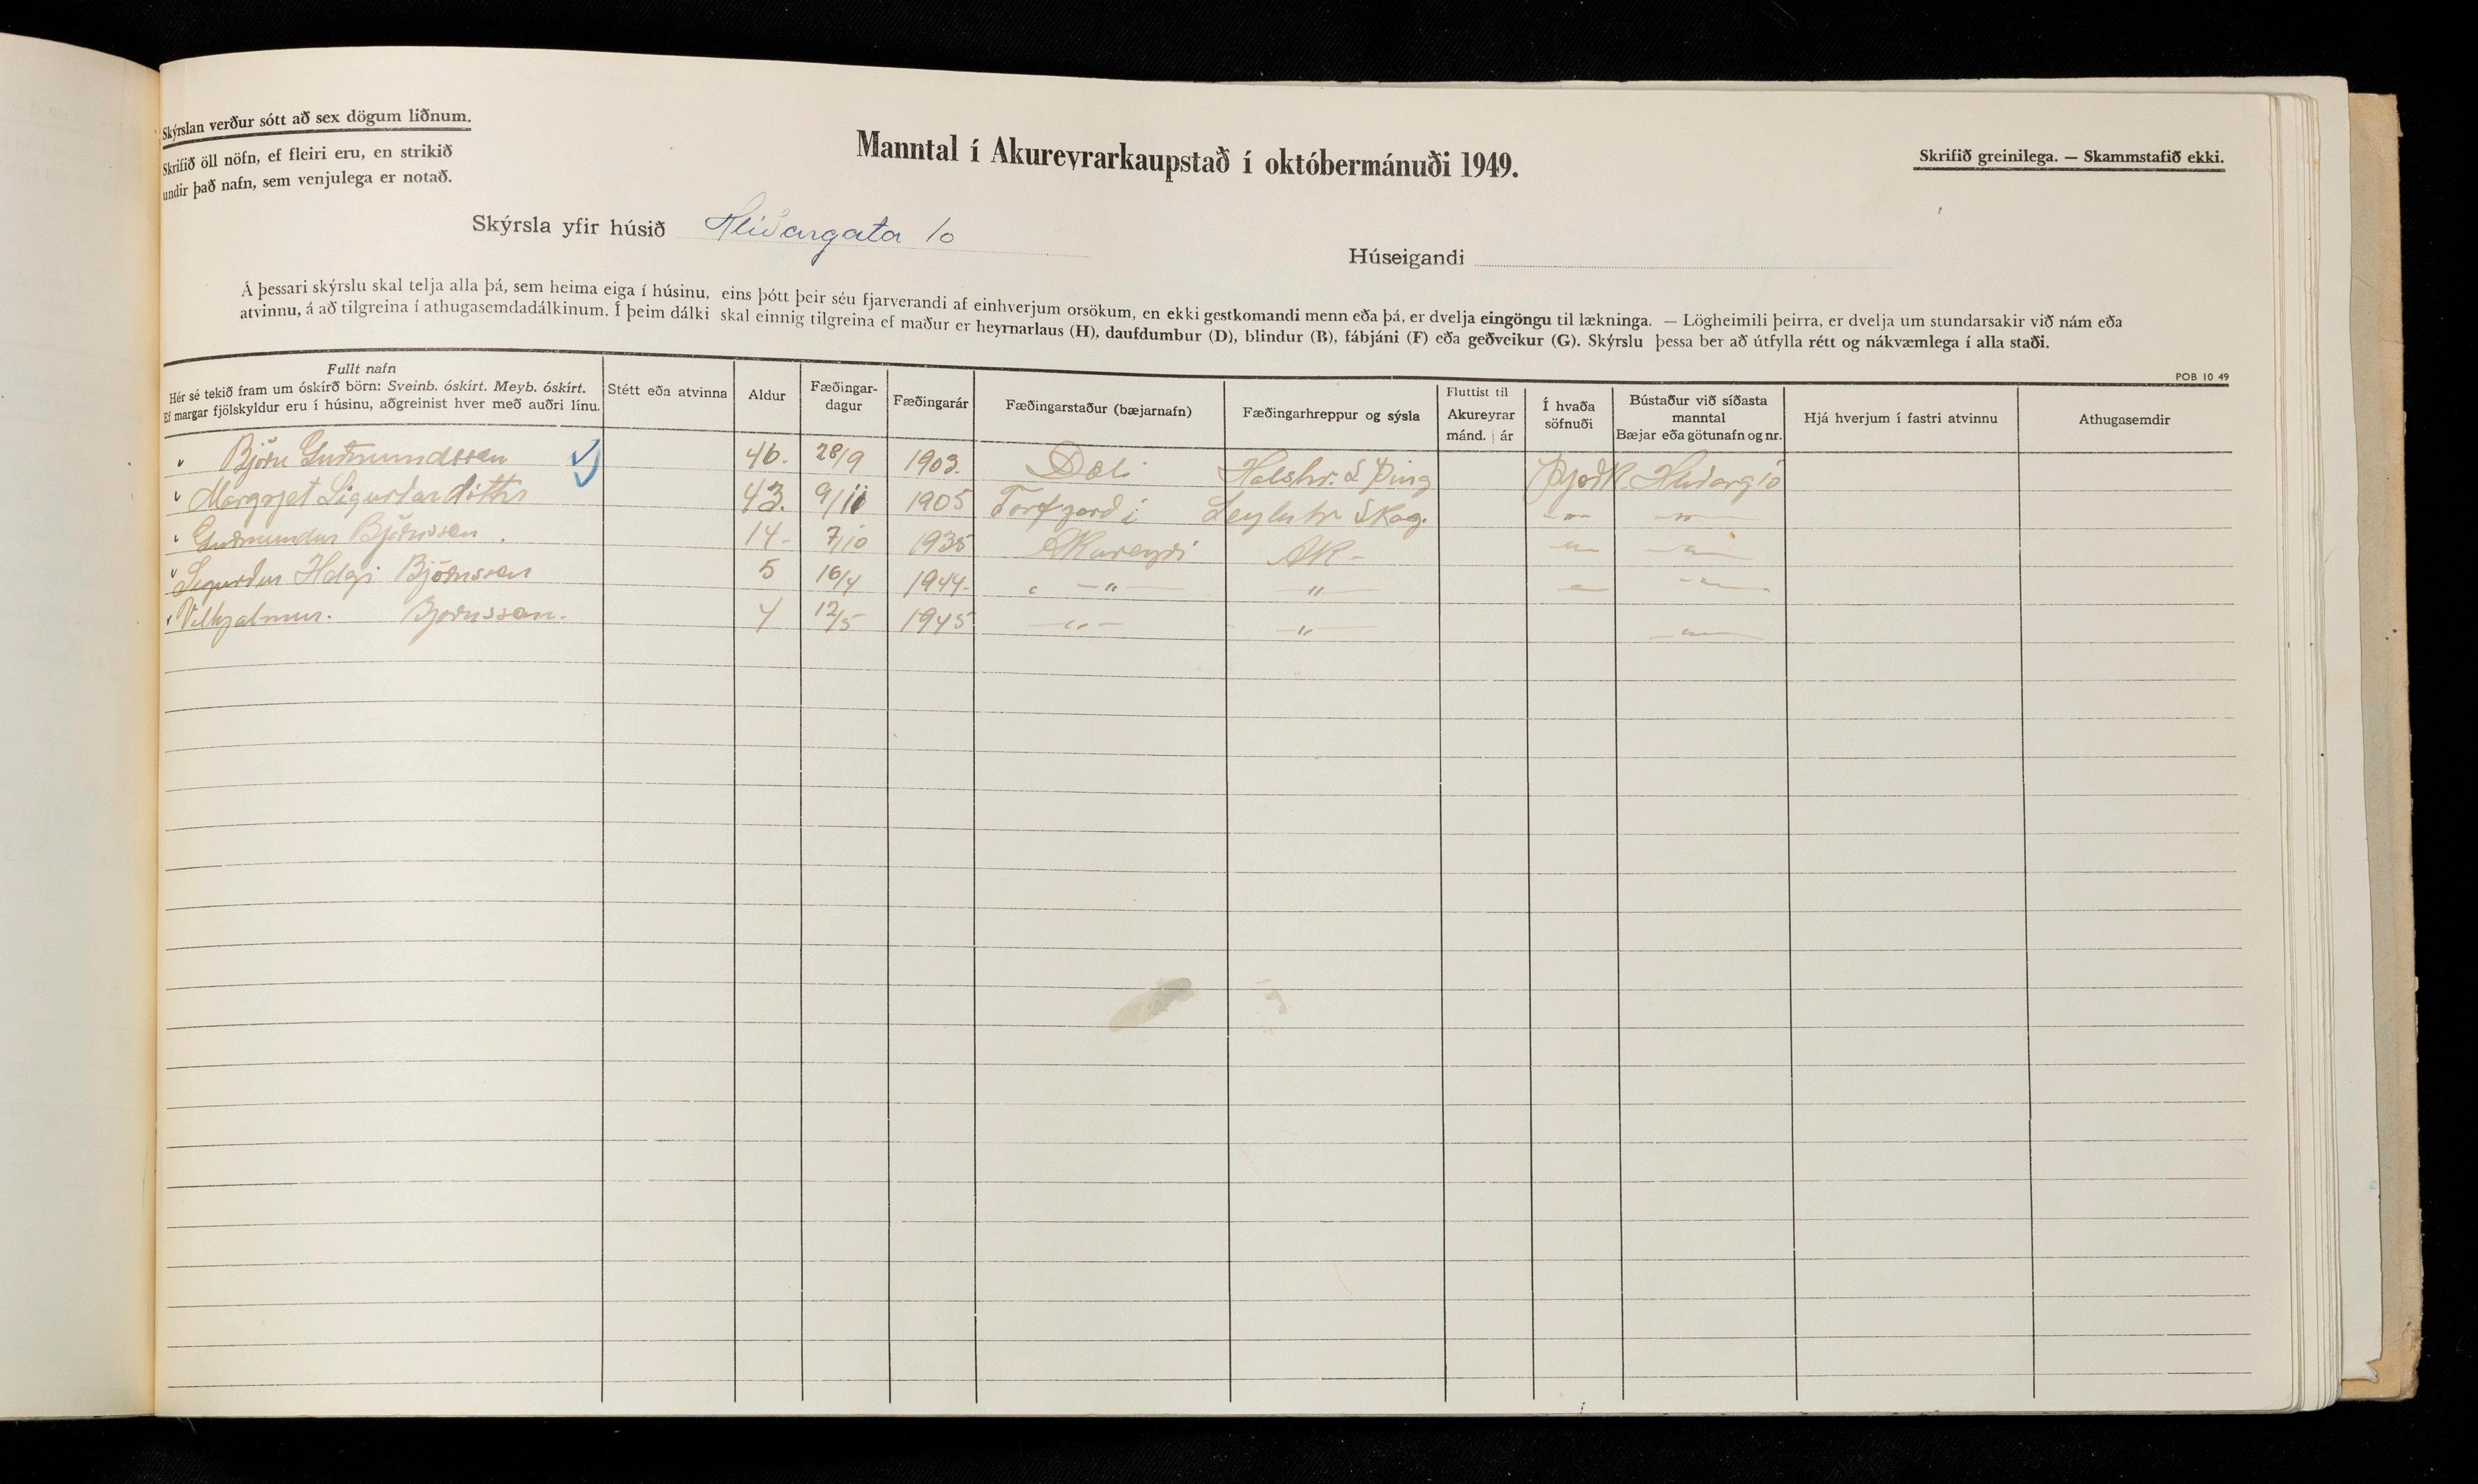 Skýrslan verður sótt að sex dögum liðnum.
Skrifið öll nöfn, ef fleiri eru, en strikið
undir það nafn, sem venjulega er notað.
Manntal í Akureyrarkaupstað í októbermánuði 1949.
Skrifið greinilega. — Skammstafið ekki.
Skýrsla yfir húsið Hlíðargata 10
Húseigandi
Á þessari skýrslu skal telja alla þá, sem heima eiga í húsinu, eins þótt þeir séu fjarverandi af einhverjum orsökum, en ekki gestkomandi menn eða þá, er dvelja eingöngu til lækninga. — Lögheimili þeirra, er dvelja um stundarsakir við nám eða
atvinnu, á að tilgreina í athugasemdadálkinum. Í þeim dálki skal einnig tilgreina ef maður er heyrnarlaus (H), daufdumbur (D), blindur (B), fábjáni (F) eða geðveikur (G). Skýrslu þessa ber að útfylla rétt og nákvæmlega í alla staði.
POB 10 49
Fullt nafn
Hér sé tekið fram um óskírð börn: Sveinb. óskírt. Meyb. óskírt.
Ef margar fjölskyldur eru í húsinu, aðgreinist hver með auðri línu.
Stétt eða atvinna
Aldur
Fæðingar-
dagur
Fæðingarár
Fæðingarstaður (bæjarnafn)
Fæðingarhreppur og sýsla
Fluttist til
Akureyrar
mánd. | ár
Í hvaða
söfnuði
Bústaður við síðasta
manntal
Bæjar eða götunafn og nr.
Hjá hverjum í fastri atvinnu
Athugasemdir
Björn Guðmundsson 46. 28/9 1903. Dæli Halshr. S Þing Þjoðk. Hlíðarg 10
Margrjet Sigurðardóttir 43. 9/11 1905 Torfgarði Seyluhr Skag. -"- -"-
Guðmundur Björnsson. 14- 7/10 1935 Akureyri Ak- -"- -"-
Sigurður Helgi Björnsson 5 16/4 1944- -"- " -"-
Vilhjalmur. Bjornsson. 4 12/5 1945 -"- -"- -"-